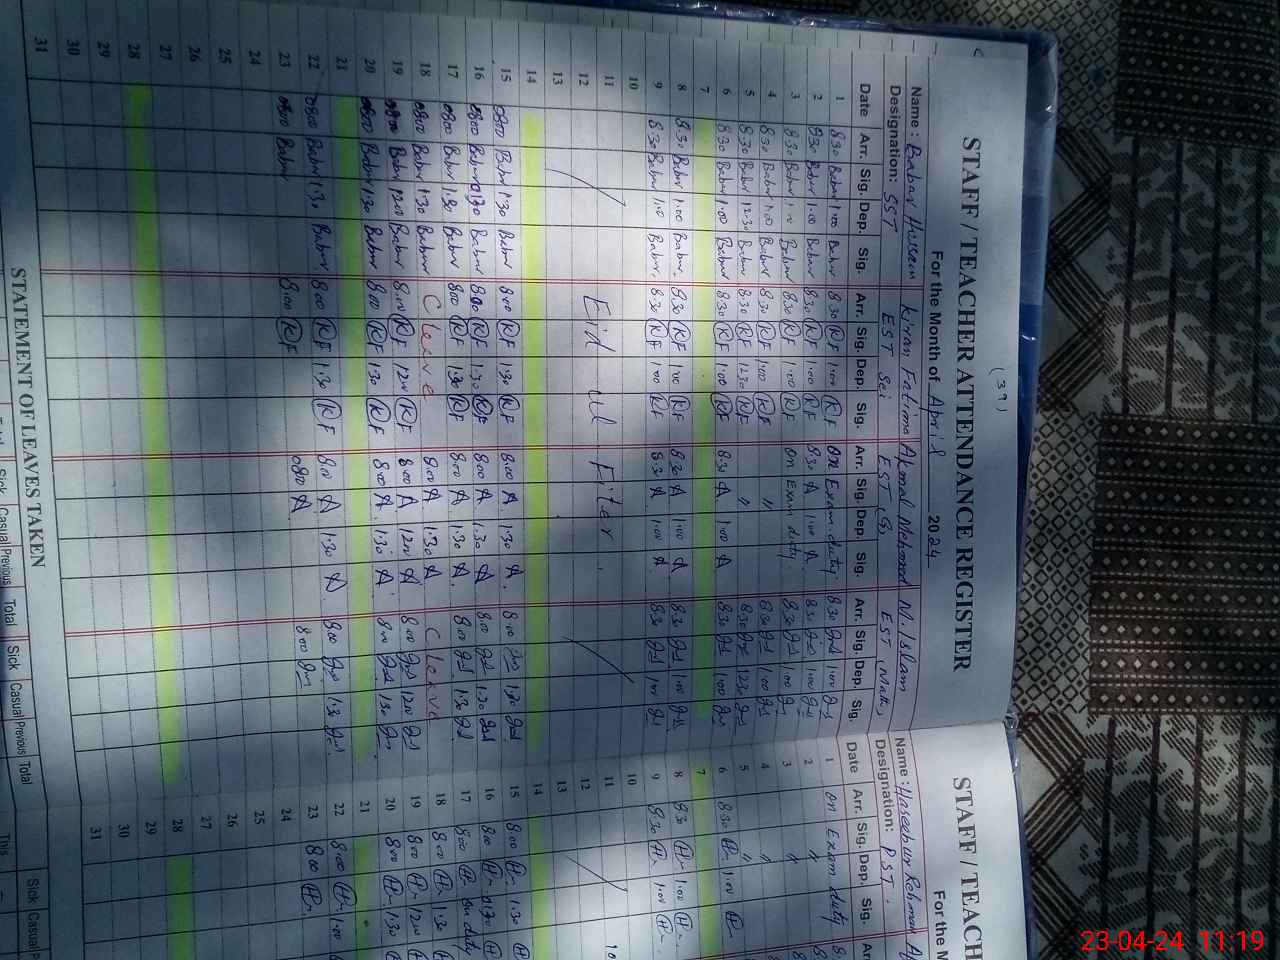 (39)
STAFF / TEACHER ATTENDANCE REGISTER
For the Month of April 2024
Name : Babar Hussain Kiran Fatima Akmal Mehmood M. Islam
Designation: SST EST Sci EST (G) EST (Math)
Date Arr. Sig. Dep. Sig. Arr. Sig. Dep. Sig. Arr. Sig. Dep. Sig. Arr. Sig. Dep. Sig.
1 8:30 Babar 1:00 Babar 8:30 KF 1:00 KF on Exam duty 8:30 1:00
2 8:30 Babar 1:00 Babar 8:30 KF 1:00 KF 8:30 A 1:00 A 8:30 1:00
3 8:30 Babar 1:00 Babar 8:30 KF 1:00 KF on Exam duty 8:30 1:00
4 8:30 Babar 1:00 Babar 8:30 KF 1:00 KF " 8:30 1:00
5 8:30 Babar 12:30 Babar 8:30 KF 12:30 KF " 8:30 12:30
6 8:30 Babar 1:00 Babar 8:30 KF 1:00 KF 8:30 A 1:00 A 8:30 1:00
7
8 8:30 Babar 1:00 Babar 8:30 KF 1:00 KF 8:30 A 1:00 A 8:30 1:00
9 8:30 Babar 1:00 Babar 8:30 KF 1:00 KF 8:30 A 1:00 A 8:30 1:00
10
11 Eid ul Fiter
12
13
14
15 0800 Babar 1:30 Babar 8:00 KF 1:30 KF 8:00 A 1:30 A 8:00 1:30
16 0800 Babar 0130 Babar 8:00 KF 1:30 KF 8:00 A 1:30 A 8:00 1:30
17 0800 Babar 1:30 Babar 8:00 KF 1:30 KF 8:00 A 1:30 A 8:00 1:30
18 0800 Babar 1:30 Babar C leave 8:00 A 1:30 A C leave
19 0800 Babar 12:00 Babar 8:00 KF 12:00 KF 8:00 A 12:00 A 8:00 12:00
20 0800 Babar 1:30 Babar 8:00 KF 1:30 KF 8:00 A 1:30 A 8:00 1:30
21
22 0800 Babar 1:30 Babar 8:00 KF 1:30 KF 8:00 A 1:30 A 8:00 1:30
23 0800 Babar 8:00 KF 0800 A 8:00
24
25
26
27
28
29
30
31
STATEMENT OF LEAVES TAKEN
Sick Casual Previous Total Sick Casual Previous Total
STAFF / TEACH
For the M
Name : Haseebur Rehman
Designation: PST
Date Arr. Sig. Dep. Sig. Ar
1 on Exam duty
2 "
3 "
4 "
5 "
6 8:30 H 1:00 H
7
8 8:30 H 1:00 H
9 8:30 H 1:00 H
10
11
12
13
14
15 8:00 H 1:30 H
16 8:00 H 0130 H
17 8:00 H on duty
18 8:00 H 1:30
19 8:00 H 12:00
20 8:00 H 1:30
21
22 8:00 H 1:00
23 8:00 H
24
25
26
27
28
29
30
31
This Sick Casual
23-04-24 11:19